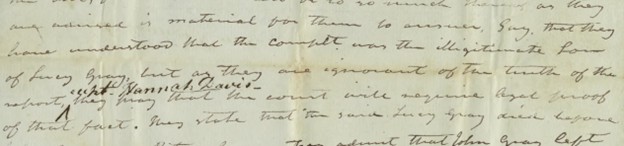 so much as they
are advised is material for them to answer, Say, that they
have understood that the complt was the illigitimate Son
of Lucy Gray, but as they are ignorant of the truth of the
Hannah Davis
report, they pray that the court will require legal proof
of that fact. They state that the said Lucy Gray died before
they admit that John Gray left